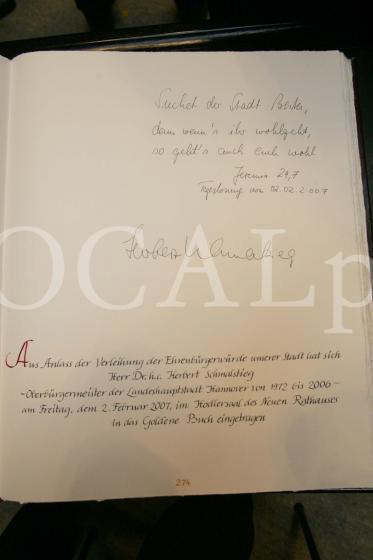 Suchet der Stadt Bestes,
denn wenn's ihr wohlgeht,
so geht's auch euch wohl
Jeremia 29,7
Tageslosung vom 02.02.2007
Herbert Schmalstieg
OCALp
Aus Anlass der Verleihung der Ehrenbürgerwürde unserer Stadt hat sich
Herr Dr. h.c. Herbert Schmalstieg
-Oberbürgermeister der Landeshauptstadt Hannover von 1972 bis 2006-
am Freitag, dem 2. Februar 2007, im Hodlersaal des Neuen Rathauses
in das Goldene Buch eingetragen
274